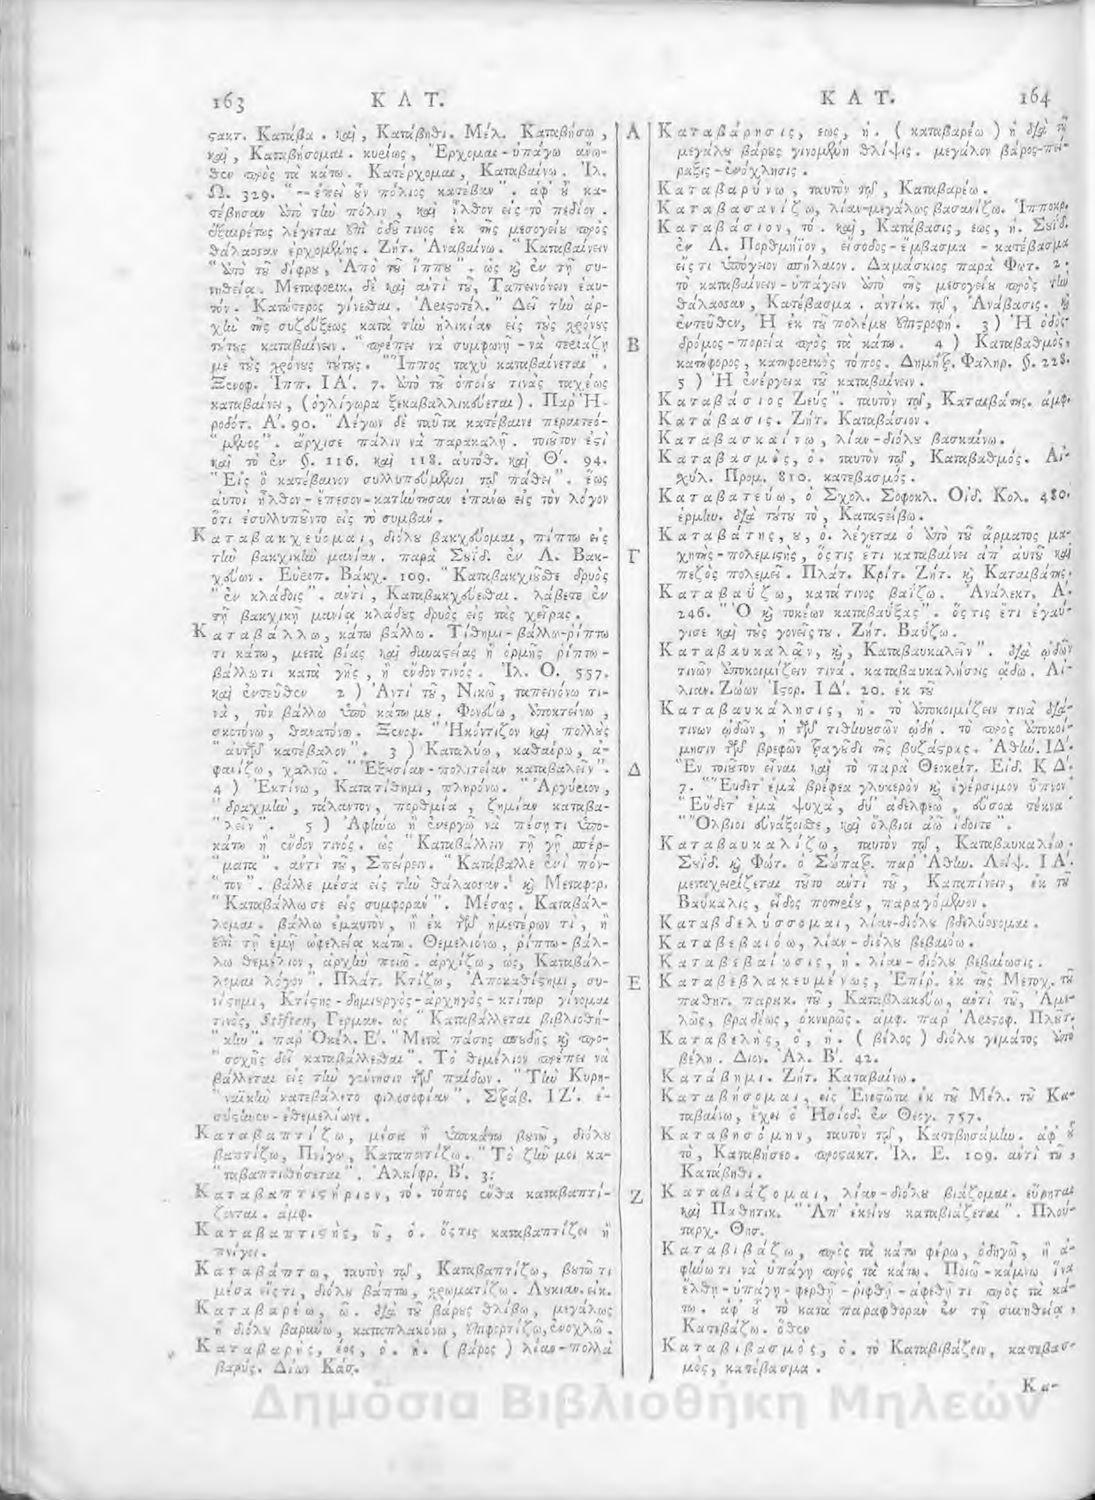 163 ΚΑΤ.
στακτ. Κατάβα. καὶ, Κατάβηθι. Μέλ. Καταβήσω,
καὶ, Καταβήσομαι. κυρίως, Ἔρχομαι-ὑπάγω ἄνω-
θεν πρὸς τὰ κάτω. Κατέρχομαι, Καταβαίνω. Ἰλ.
Ω. 329. "-ἐπεὶ ἂν πόλιος κατέβαν". ἀφ' οὗ κα-
τέβησαν ἀπὸ τὴν πόλιν, καὶ ἦλθον εἰς τὸ πεδίον.
ἐξαιρέτως λέγεται ἐπὶ ὁδοῦ τινος ἐκ τῆς μεσογείου πρὸς
θάλασσαν ἐρχομένης. Ζήτ. Ἀναβαίνω. "Καταβαίνειν
"ἀπὸ τοῦ δίφρου, Ἀπὸ τοῦ ἵππου". ὡς καὶ ἐν τῇ συ-
νηθείᾳ. Μεταφορικ. δὲ καὶ ἀντὶ τοῦ, Ταπεινόνειν ἑαυ-
τόν. Κατώτερος γίνεσθαι. Ἀριστοτέλ. "Δεῖ τὴν ἀρ-
χὴν τῆς συζεύξεως κατὰ τὴν ἡλικίαν εἰς τοὺς χρόνους
τούτους καταβαίνειν. "πρέπει νὰ συμφωνῇ-νὰ
μὲ τοὺς χρόνους τούτους. "Ἵππος ταχὺ καταβαίνεται".
Ξενοφ. Ἱππ. ΙΑ'. 7. ἀπὸ τοῦ ὁποίου τινὰς ταχέως
καταβαίνει, (ὀγλίγωρα ξεκαβαλλικεύεται). Παρ' Ἡ-
ροδότ. Α'. 90. "Λέγων δὲ ταῦτα κατέβαινε
"μενος". ἄρχισε πάλιν νὰ παρακαλῇ. τοιοῦτον ἐστὶ
καὶ τὸ ἐν §. 116. καὶ 118. αὐτόθ. καὶ Θ'. 94.
"Εἰς ὃ κατέβαινον συλλυπεύμενοι τῷ πάθει". ἕως
αὐτοὶ ἦλθον-ἔπεσον-κατήντησαν ἐπάνω εἰς τὸν λόγον
ὅτι ἐσυλλυποῦντο εἰς τὸ συμβάν.
Καταβακχεύομαι, διόλου βακχεύομαι, πίπτω εἰς
τὴν βακχικὴν μανίαν. παρὰ Σουΐδ. ἐν Λ. Βακ-
χεύων. Εὐριπ. Βάκχ. 109. "Καταβακχιοῦσθε δρυὸς
"ἐν κλάδοις". ἀντὶ, Καταβακχεύεσθαι. λάβετε ἐν
τῇ βακχικῇ μανίᾳ κλάδους δρυὸς εἰς τὰς χεῖρας.
Καταβάλλω, κάτω βάλλω. Τίθημι-βάλλω-ρίπτω
τι κάτω, μετὰ βίας καὶ δυναστείας ἢ ὁρμῆς ρίπτω-
βάλλω τι κατὰ γῆς, ἢ ἔνδον τινός. Ἰλ. Ο. 557.
καὶ ἐντεῦθεν 2) Ἀντὶ τοῦ, Νικῶ, ταπεινόνω τι-
νὰ, τὸν βάλλω ὑπὸ κάτω μου. Φονεύω, Ἀποκτείνω,
σκοτόνω, θανατόνω. Ξενοφ. "Ἠκόντιζον καὶ πολλοὺς
"αὐτῶν κατέβαλον". 3) Καταλύω, καθαίρω, ἀ-
φανίζω, χαλνῶ. "Ἐξουσίαν-πολιτείαν καταβαλεῖν".
4) Ἐκτίνω, Κατατίθημι, πληρόνω. "Ἀργύριον,
"δραχμὴν, τάλαντον, πορθμία, ζημίαν καταβα-
"λεῖν". 5) Ἀφίνω ἢ ἐνεργῶ νὰ πέσῃ τι ὑπο-
κάτω ἢ ἔνδον τινός. ὡς "Καταβάλλειν τῇ γῇ σπέρ-
"ματα". ἀντὶ τοῦ, Σπείρειν. "Κατάβαλλε ἐνὶ πόν-
"τον". βάλλε μέσα εἰς τὴν θάλασσαν. καὶ Μεταφορ.
"Καταβάλλω σε εἰς συμφοράν". Μέσως. Καταβάλ-
λομαι. βάλλω ἐμαυτὸν, ἢ ἐκ τῶν ἡμετέρων τί, ἢ
ἐπὶ τῇ ἐμῇ ὠφελείᾳ κάτω. Θεμελιόνω, ρίπτω-βάλ-
λω θεμέλιον, ἀρχὴν ποιῶ. ἀρχίζω, ὡς, Καταβάλ-
λεμαι λόγον". Πλάτ. Κτίζω, Ἀποκαθίστημι, συ-
νίστημι, Κτίστης-δημιουργὸς-ἀρχηγὸς-κτίτωρ γίνομαι
τινὸς, Stiften, Γερμαν. ὡς "Καταβάλλεται βιβλιοθή-
"κην". παρ' Ὀκέλ. Ε'. "Μετὰ πάσης σπουδῆς καὶ προ-
"σοχῆς δεῖ καταβάλλεσθαι". Τὸ θεμέλιον πρέπει νὰ
βάλλεται εἰς τὴν γέννησιν τῶν παίδων. "Τὴν Κυρη-
"ναϊκὴν κατεβάλετο φιλοσοφίαν". Στράβ. ΙΖ'. ἐ-
σύστησεν-ἐθεμελίωσε.
Καταβαπτίζω, μέσα ἢ ὑποκάτω βουτῶ, διόλου
βαπτίζω, Πνίγω, Καταποντίζω. "Τὸ ζῆν μοι κα-
"ταβαπτισθήσεται". Ἀλκίφρ. Β'. 3.
Καταβαπτιστήριον, τό. τόπος ἔνθα καταβαπτί-
ζονται. ἀμφ.
Καταβαπτιστὴς, ῆ, ὁ. ὅστις καταβαπτίζει ἢ
πνίγει.
Καταβάπτω, ταυτὸν τῷ, Καταβαπτίζω, βουτῶ τι
μέσα εἴς τι, διόλου βάπτω, χρωματίζω. Λουκιαν. εἰκ.
Καταβαρέω, ῶ. διὰ τοῦ βάρους θλίβω, μεγάλως
ἢ διόλου βαρύνω, καταπλακόνω, ἐπιφορτίζω, ἐνοχλῶ.
Καταβαρὴς, έος, ὁ. ἡ. (βάρος) λίαν-πολλὰ
βαρύς. Δίων Κάσ.
Α
Β
Γ
Δ
Ε
Ζ
ΚΑΤ. 164
Καταβάρησις, εως, ἡ. (καταβαρέω) ἡ διὰ τοῦ
μεγάλου βάρους γινομένη θλίψις. μεγάλον βάρος-πεί-
ραξις-ἐνόχλησις.
Καταβαρύνω, ταυτὸν τῷ, Καταβαρέω.
Καταβασανίζω, λίαν-μεγάλως βασανίζω. Ἱπποκρ.
Καταβάσιον, τό. καὶ, Κατάβασις, εως, ἡ. Σουΐδ.
ἐν Λ. Πορθμήϊον, εἴσοδος-ἔμβασμα-κατέβασμα
εἴς τι ὑπόγειον σπήλαιον. Δαμάσκιος παρὰ Φωτ. 2.
τὸ καταβαίνειν-ὑπάγειν ἀπὸ τῆς μεσογείου πρὸς τὴν
θάλασσαν, Κατέβασμα. ἀντίκ. τῷ, Ἀνάβασις. καὶ
ἐντεῦθεν, Ἡ ἐκ τοῦ πολέμου ἐπιστροφή. 3) Ἡ ὁδὸς-
δρόμος-πορεία πρὸς τὰ κάτω. 4) Καταβαθμὸς,
κατήφορος, κατηφορικὸς τόπος. Δημήτρ. Φαληρ. §. 228.
5) Ἡ ἐνέργεια τοῦ καταβαίνειν.
Καταβάσιος Ζεύς". ταυτὸν τῷ, Καταιβάτης. ἀμφ.
Κατάβασις. Ζήτ. Καταβάσιον.
Καταβασκαίνω, λίαν-διόλου βασκαίνω.
Καταβασμὸς, ὁ. ταυτὸν τῷ, Καταβαθμός. Αἰ-
σχύλ. Προμ. 810. κατεβασμός.
Καταβατεύω, ὁ Σχολ. Σοφοκλ. Οἰδ. Κολ. 480.
ἑρμην. διὰ τούτου τὸ, Καταστείβω.
Καταβάτης, ου, ὁ. λέγεται ὁ ἀπὸ τοῦ ἅρματος μα-
χητὴς-πολεμιστὴς, ὅστις ἔτι καταβαίνει ἀπ' αὐτοῦ καὶ
πεζὸς πολεμεῖ. Πλάτ. Κριτ. Ζήτ. καὶ Καταιβάτης.
Καταβαΰζω, κατά τινος βαΐζω. Ἀνάλεκτ. Α'.
246. "Ὁ καὶ τοκέων καταβαΰξας". ὅστις ἔτι ἐγαύ-
γισε καὶ τοὺς γονεῖς του. Ζήτ. Βαΰζω.
Καταβαυκαλᾶν, καὶ, Καταβαυκαλεῖν". διὰ ᾠδῶν
τινῶν ἀποκοιμίζειν τινά. καταβαυκαλήσεις ᾄδω. Αἰ-
λιαν. Ζώων Ἱστορ. ΙΔ'. 20. ἐκ τοῦ
Καταβαυκάλησις, ἡ. τὸ ἀποκοιμίζειν τινὰ διά-
τινων ᾠδῶν, ἢ τῶν τιθηνουσῶν ᾠδή. τὸ πρὸς ἀποκοί-
μησιν τῶν βρεφῶν τραγοῦδι τῆς βυζάστρας. Ἀθήν. ΙΔ'.
Ἓν τοιοῦτον εἶναι καὶ τὸ παρὰ Θεοκρίτ. Εἰδ. ΚΔ'.
7. "Εὕδετ' ἐμὰ βρέφεα γλυκερὸν καὶ ἐγέρσιμον ὕπνον
"Εὕδετ' ἐμὰ ψυχὰ, δύ' ἀδελφεὼ, εὔσοα τέκνα
"Ὄλβιοι εὐνάζοισθε, καὶ ὄλβιοι ἀῶ ἵδοιτε".
Καταβαυκαλίζω, ταυτὸν τῷ, Καταβαυκαλέω.
Σουΐδ. καὶ Φώτ. ὁ Σώπατρ. παρ' Ἀθήν. Λειψ. ΙΑ'.
μεταχειρίζεται τοῦτο ἀντὶ τοῦ, Καταπίνειν, ἐκ τοῦ
Βαύκαλις, εἶδος ποτηρίου, παραγόμενον.
Καταβδελύσσομαι, λίαν-διόλου βδελύσσομαι.
Καταβεβαιόω, λίαν-διόλου βεβαιόω.
Καταβεβαίωσις, ἡ. λίαν-διόλου βεβαίωσις.
Καταβεβλακευμένως, Ἐπίρ. ἐκ τῆς Μετοχ. τοῦ
παθητ. παρακ. τοῦ, Καταβλακεύω, ἀντὶ τοῦ, Ἀμε-
λῶς, βραδέως, ὀκνηρῶς. ἀμφ. παρ' Ἀριστοφ. Πλούτ.
Καταβελὴς, ὁ, ἡ. (βέλος) διόλου γεμάτος ἀπὸ
βέλη. Διον. Ἁλ. Β'. 42.
Κατάβημι. Ζήτ. Καταβαίνω.
Καταβήσομαι, εἰς Ἐνεστῶτα ἐκ τοῦ Μέλ. τοῦ Κα-
ταβαίνω, ἔχει ὁ Ἡσίοδ. ἐν Θεογ. 757.
Καταβησόμην, ταυτὸν τῷ, Κατεβησάμην. ἀφ' οὗ
τὸ, Καταβήσεο. προστακτ. Ἰλ. Ε. 109. ἀντὶ τοῦ,
Κατάβηθι.
Καταβιάζομαι, λίαν-διόλου βιάζομαι. εὕρηται
καὶ Παθητικ. "Ἀπ' ἐκείνου καταβιάζεται". Πλού-
ταρχ. Θησ.
Καταβιβάζω, πρὸς τὰ κάτω φέρω, ὁδηγῶ, ἢ ἀ-
φίνω τι νὰ ὑπάγῃ πρὸς τὰ κάτω. Ποιῶ-κάμνω ἵνα
ἔλθῃ-ὑπάγῃ-φερθῇ-ριφθῇ-ἀφεθῇ τι πρὸς τὰ κά-
τω. ἀφ' οὗ τὸ κατὰ παραφθορὰν ἐν τῇ συνηθείᾳ,
Κατεβάζω. ὅθεν
Καταβιβασμὸς, ὁ. τὸ Καταβιβάζειν, κατεβασ-
μὸς, κατέβασμα.
Κα-
Δημόσια Βιβλιοθήκη Μηλεών